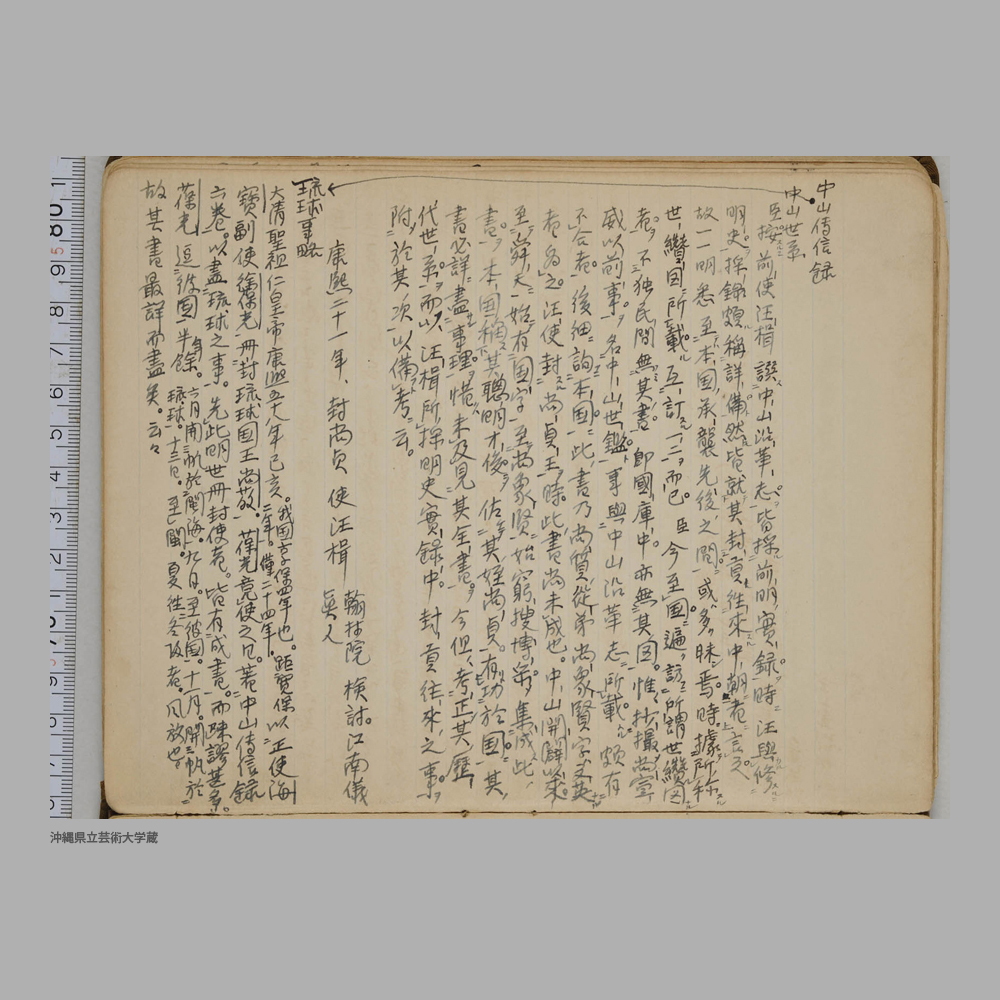 中山傳信録
中山世系
臣按 前使汪楫 譔中山沿革志 皆採前明實録 時汪與修
明史 採録頗稱詳備 然皆就其封貢往來中朝者言之
故一一明悉 至本国承襲先後之間 或多昧焉 時據所称
世纘圖所載 互訂一二而已 臣今至国 遍訪所謂世纘図
者 不独民間無其書 即國庫中亦無其図 惟抄撮尚寧
威以前事 名中山世鑑 事與中山沿革志所載 頗有
不合者 後細詢本国 此書乃尚質従弟尚象賢字文英
者為之 汪使封尚貞王時 此書尚未成也 中山開闢以来
至舜天 始有国字 至尚象賢 始窮搜博采 集成此
書 本国稱其聰明才俊 佐其姪尚貞 有功於国 其
書必詳盡事理 惜未及見其全書 今但考正其歴
代世系 而以汪楫所採明史實録中封貢往來之事
附於其次 以備考云
康熙二十一年、封尚貞 使汪楫 翰林院 検討。江南儀
真人
琉球事略
大清聖祖仁皇帝康熙五十八年己亥。我国享保四年也。距寶保以 正使海
二年。僅二十四年。
寶副使徐葆光 冊封琉球国王尚敬 葆光竟使之日。著中山傳信録
六巻。以盡琉球之事。先此明世冊封使者。皆有成書。而踈謬甚多。
葆光逗彼国半餘。六月開帆於閩海。九日。至彼国。十一月。開帆於
琉球。十三日。至閩。夏往冬返者。風故也。
故其書最詳而盡矣。云々
沖縄県立芸術大学蔵